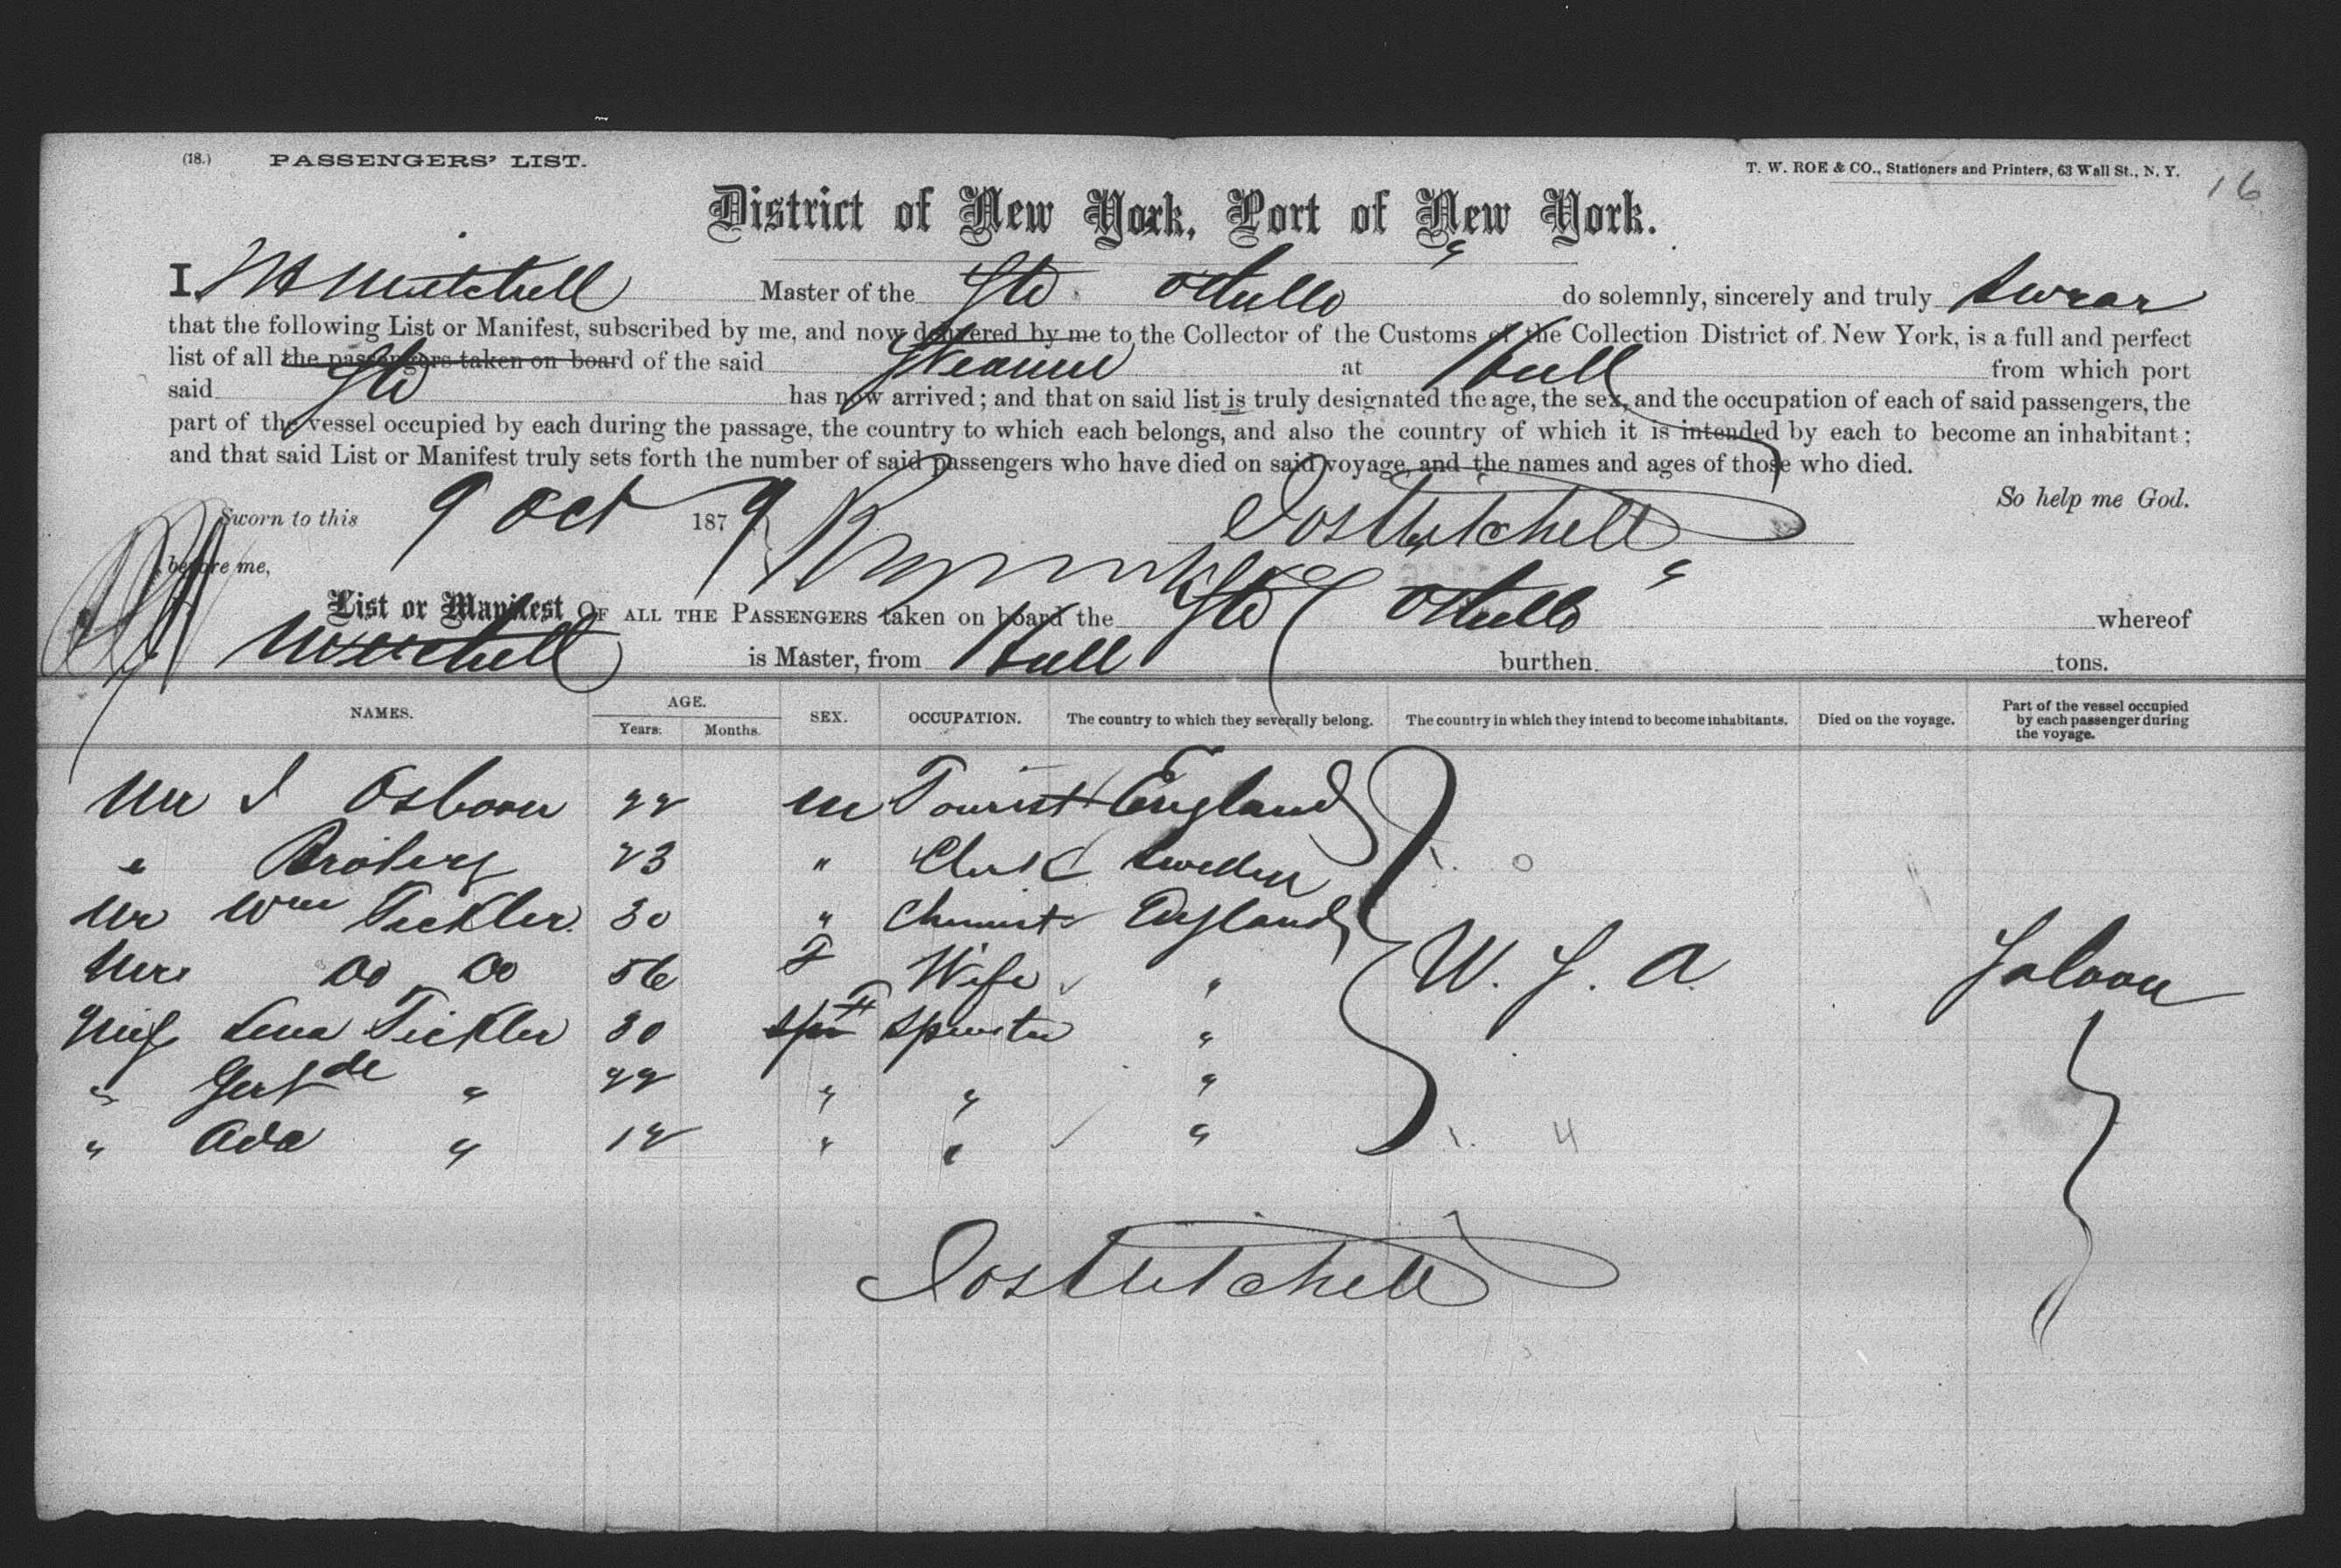 (18.) PASSENGERS' LIST. T. W. ROE & CO., Stationers and Printers, 63 Wall St., N. Y. 16
District of New York, Port of New York.
I, Mitchell Master of the Str Othello do solemnly, sincerely and truly swear
that the following List or Manifest, subscribed by me, and now delivered by me to the Collector of the Customs of the Collection District of New York, is a full and perfect
list of all the passengers taken on board of the said Steamer at Hull from which port
said Str has now arrived; and that on said list is truly designated the age, the sex, and the occupation of each of said passengers, the
part of the vessel occupied by each during the passage, the country to which each belongs, and also the country of which it is intended by each to become an inhabitant;
and that said List or Manifest truly sets forth the number of said passengers who have died on said voyage, and the names and ages of those who died.
So help me God.
Sworn to this 9 Oct 1879 Jos Mitchell
before me,
List or Manifest OF ALL THE PASSENGERS taken on board the Str Othello whereof
Mitchell is Master, from Hull burthen tons.
NAMES. AGE. Years. Months. SEX. OCCUPATION. The country to which they severally belong. The country in which they intend to become inhabitants. Died on the voyage. Part of the vessel occupied by each passenger during the voyage.
Mr J Osborn 22 m Tourist England
" Broberg 23 " Clerk Sweden 0
Mr Wm Tickler 30 " Chemist England
Mrs Do Do 56 F Wife " U. S. A. Saloon
Miss Lena Tickler 30 F Spinster "
" Gertde " 22 " " "
" Ada " 12 " " " 4
Jos Mitchell